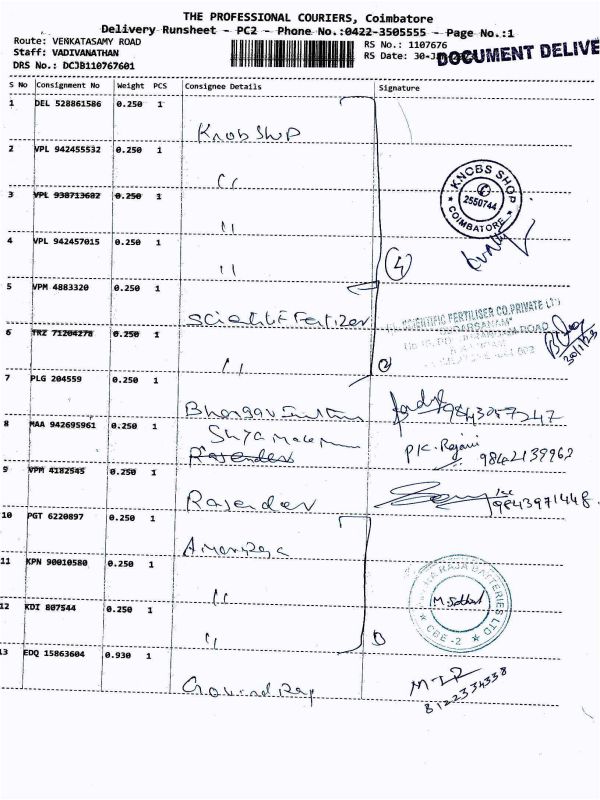 THE PROFESSIONAL COURIERS, Coimbatore
Delivery Runsheet - PC2 - Phone No.:0422-3505555 - Page No.:1
Route: VENKATASAMY ROAD
RS No.: 1107676
Staff: VADIVANATHAN
RS Date: 30-
DOCUMENT DELIVE
DRS No.: DCJB110767601
S No Consignment No Weight PCS Consignee Details Signature
1 DEL 528861586 0.250 1
Knob Shop
2 VPL 942455532 0.250 1
''
KNOBS SHOP
2550744
COIMBATORE
3 VPL 938713602 0.250 1
''
4 VPL 942457015 0.250 1
''
4
5 VPM 4883320 0.250 1
Scientific Fertilizer
SCIENTIFIC FERTILISER CO.PRIVATE LTD
"SUDARSANAM"
ROAD
6 TRZ 71204278 0.250 1
''
2
30/1/23
7 PLG 204559 0.250 1
Bhargav
9843057247
8 MAA 942695961 0.250 1
Rajendev
P.K. Rajani
9842139962
9 VPM 4182545 0.250 1
Rajendev
9843971448
10 PGT 6220897 0.250 1
Amar Raja
11 KPN 90010580 0.250 1
''
RAJA BATTERIES LTD
CBE-2
12 KDI 807544 0.250 1
''
13 EDQ 15863604 0.930 1
Govind Raj
8122334338